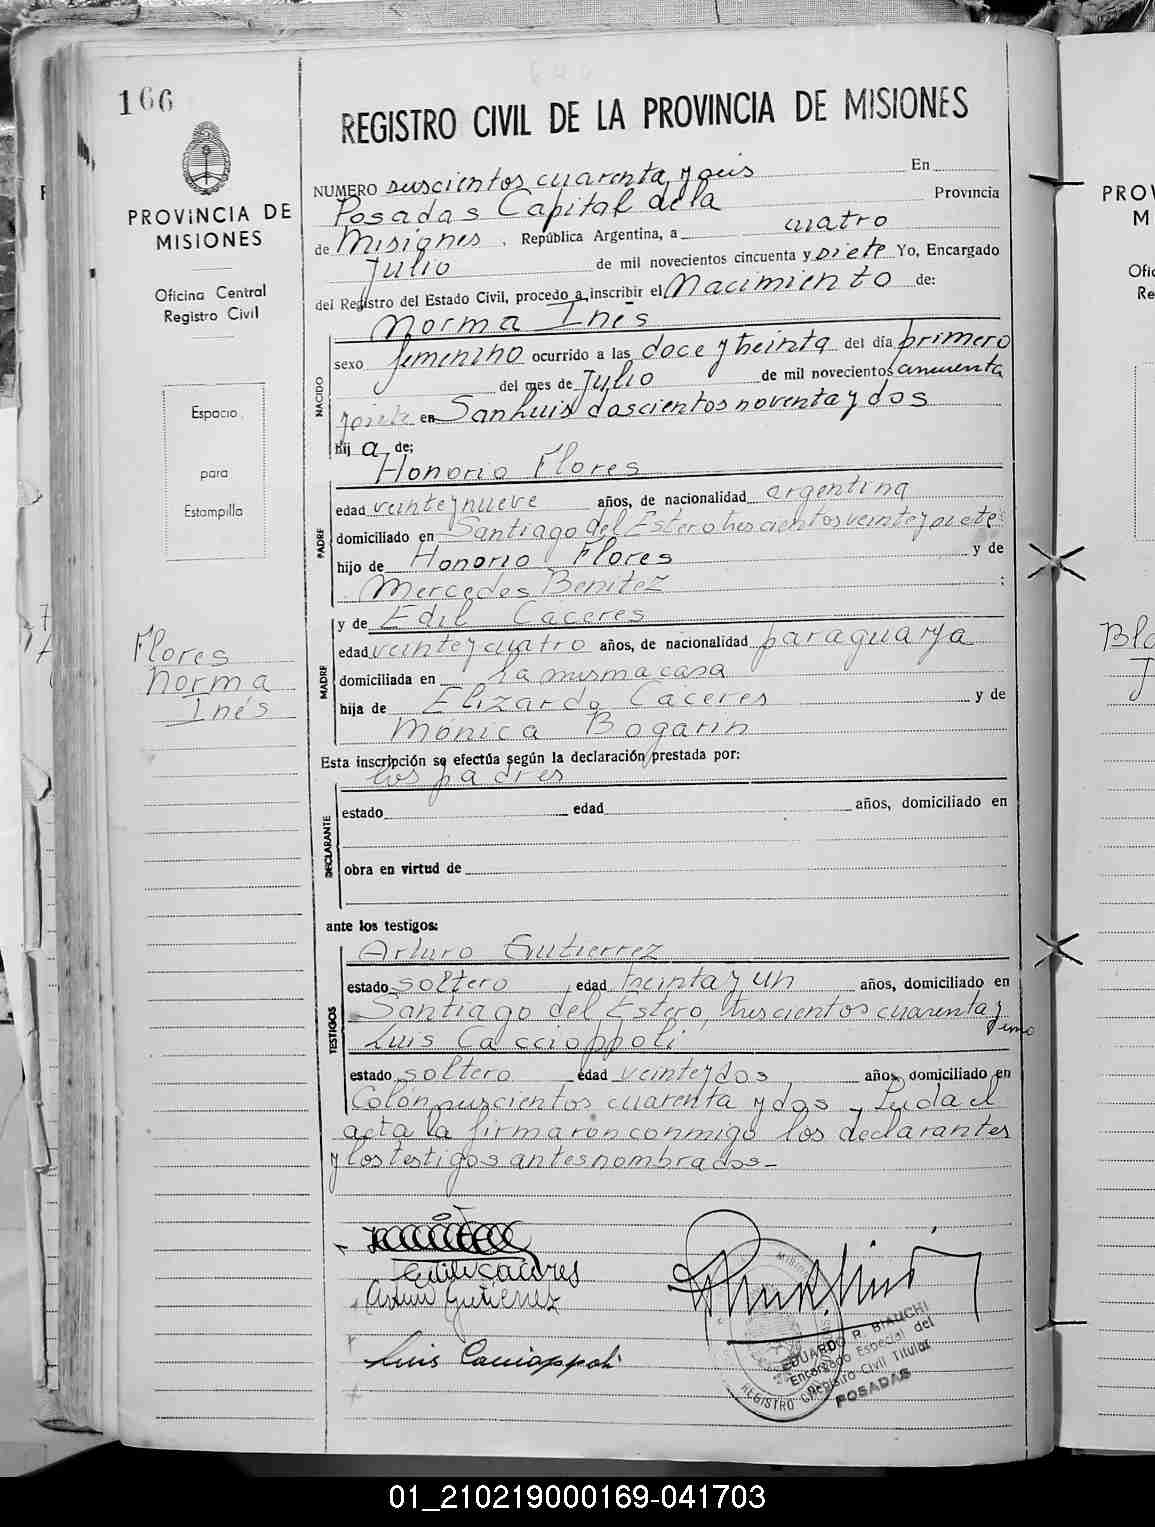 166
REGISTRO CIVIL DE LA PROVINCIA DE MISIONES
PROVINCIA DE
MISIONES
Oficina Central
Registro Civil
Espacio
para
Estampilla
Flores
Norma
Inés
NUMERO suscientos cuarenta y seis En
Posadas Capital de la Provincia
de Misiones, República Argentina, a cuatro
Julio de mil novecientos cincuenta y siete Yo, Encargado
del Registro del Estado Civil, procedo a inscribir el Nacimiento de:
Norma Inés
NACIDO
sexo femenino ocurrido a las doce y treinta del día primero
del mes de Julio de mil novecientos cincuenta
y siete en San Luis doscientos noventa y dos
hij a de:
Honorio Flores
PADRE
edad veinte y nueve años, de nacionalidad argentina
domiciliado en Santiago del Estero trescientos veinte y siete
hijo de Honorio Flores y de
Mercedes Benitez ;
y de Edil Caceres
MADRE
edad veinte y cuatro años, de nacionalidad paraguaya
domiciliada en La misma casa
hija de Elizardo Caceres y de
Mónica Bogarin
Esta inscripción se efectúa según la declaración prestada por:
los padres
DECLARANTE
estado edad años, domiciliado en
obra en virtud de
ante los testigos:
Arturo Gutierrez
TESTIGOS
estado soltero edad treinta y un años, domiciliado en
Santiago del Estero, trescientos cuarenta y
uno
Luis Caccioppoli
estado soltero edad veinte y dos años, domiciliado en
Colón suscientos cuarenta y dos - Leida el
acta la firmaron conmigo los declarantes
y los testigos antes nombrados-
Arturo Gutierrez
Luis Caccioppoli
EDUARDO P. BIANCHI
Encargado Especial del
Registro Civil Titular
POSADAS
REGISTRO
PROV
M
Ofic
Re
01_210219000169-041703